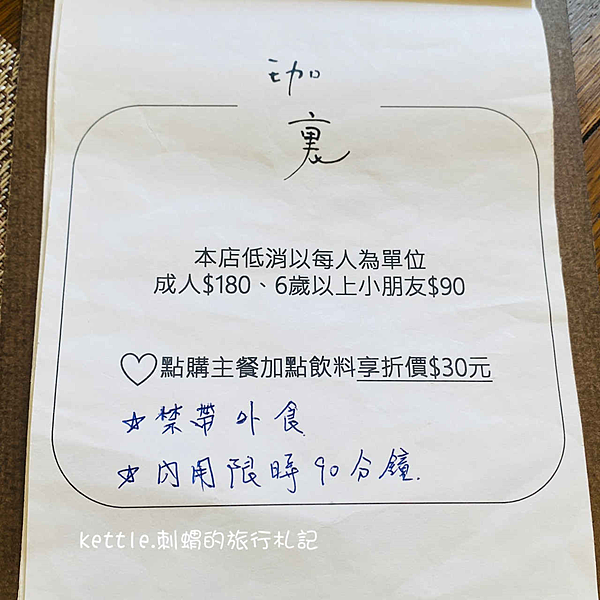 珈
裏
本店低消以每人為單位
成人$180、6歲以上小朋友$90
♡點購主餐加點飲料享折價$30元
☆禁帶外食
☆內用限時90分鐘.
kettle.刺蝟的旅行札記